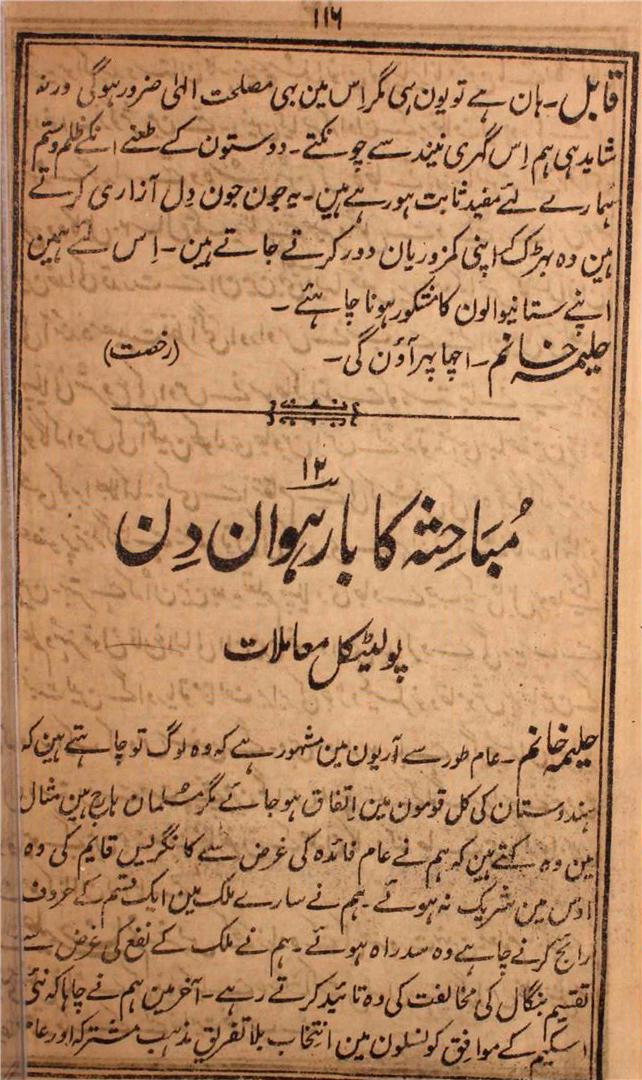 ۱۱۶
قابل۔ ہان ہے تو یون ہی مگر اِس مین بہی مصلحت الہٰی ضرور ہوگی ورنہ
شاید ہی ہم اِس گہری نیند سے چونکتے۔ دوستون کے طعنے انکے ظلم و ستم
ہمارے لئے مفید ثابت ہو رہے ہین۔ یہ جون جون دِل آزاری کرتے
ہین وہ بہڑک کے اپنی کمزوریان دور کرتے جاتے ہین۔ اِس لئے ہمین
اپنے ستانیوالون کا مشکور ہونا چاہئے۔
حلیمہ خانم۔ اچہا پہر آؤن گی۔ (رخصت)
۱۲
مُبَاحِثہ کا بارہوان دِن
پولیٹیکل معاملات
حلیمہ خانم۔ عام طور سے آریون مین مشہور ہے کہ وہ لوگ تو چاہتے ہین کہ
ہندوستان کی کل قومون مین اِتفاق ہو جائے مگر مسلمان ہارج ہین مثال
مین وہ کہتے ہین کہ ہم نے عام فائدہ کی غرض سے کانگریس قایم کی وہ
اوس مین شریک نہ ہوئے۔ ہم نے سارے ملک مین ایک قسم کے حروف
رائج کرنے چاہے وہ سدراہ ہوئے۔ ہم نے ملک کے نفع کی غرض سے
تقسیم بنگال کی مخالفت کی وہ تائید کرتے رہے۔ آخر مین ہم نے چاہا کہ نئی
اسکیم کے موافق کونسلون مین انتخاب بلا تفریقِ مذہب مشترکہ اور عام